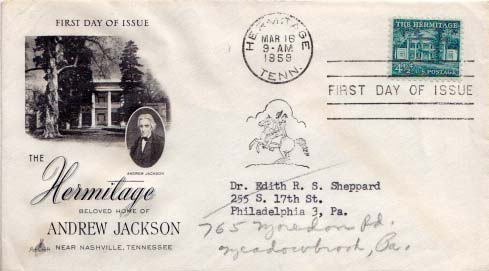 FIRST DAY OF ISSUE
ANDREW JACKSON
THE
Hermitage
BELOVED HOME OF
ANDREW JACKSON
NEAR NASHVILLE, TENNESSEE
HERMITAGE
MAR 16
9-AM
1959
TENN.
THE HERMITAGE
4½¢ U.S. POSTAGE
FIRST DAY OF ISSUE
Dr. Edith R. S. Sheppard
255 S. 17th St.
Philadelphia 3, Pa.
765 Moredon Rd.
Meadowbrook, Pa.